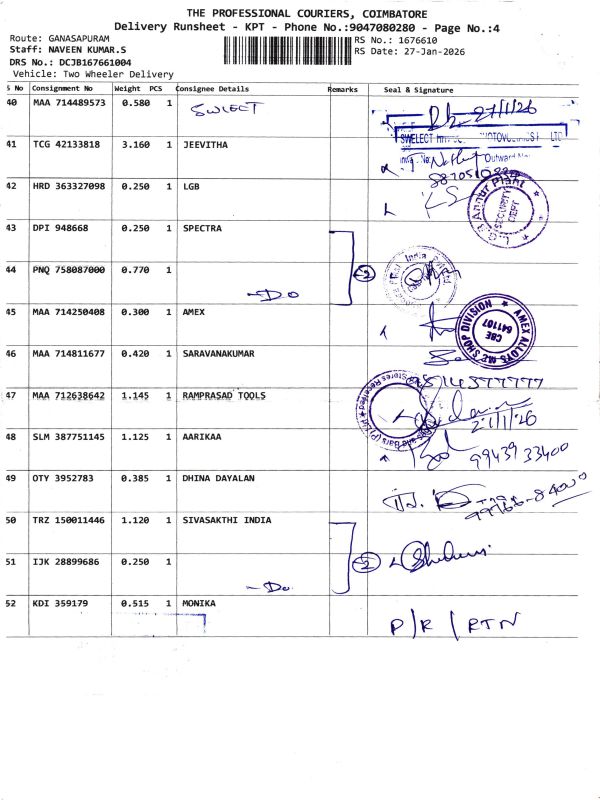 THE PROFESSIONAL COURIERS, COIMBATORE
Delivery Runsheet - KPT - Phone No.:9047080280 - Page No.:4
Route: GANASAPURAM
RS No.: 1676610
Staff: NAVEEN KUMAR.S
RS Date: 27-Jan-2026
DRS No.: DCJB167661004
Vehicle: Two Wheeler Delivery
S No Consignment No Weight PCS Consignee Details Remarks Seal & Signature
40 MAA 714489573 0.580 1 SWLECT 27/1/26
SWELECT
41 TCG 42133818 3.160 1 JEEVITHA
Outward
42 HRD 363327098 0.250 1 LGB
L.G.B Annur Plant SECURITY DEPT
43 DPI 948668 0.250 1 SPECTRA
44 PNQ 758087000 0.770 1 -Do 2
45 MAA 714250408 0.300 1 AMEX
AMEX ALLOYS M/C SHOP DIVISION CBE 641107
46 MAA 714811677 0.420 1 SARAVANAKUMAR
47 MAA 712638642 1.145 1 RAMPRASAD TOOLS
27/1/26
48 SLM 387751145 1.125 1 AARIKAA
99439 33400
49 OTY 3952783 0.385 1 DHINA DAYALAN
50 TRZ 150011446 1.120 1 SIVASAKTHI INDIA
51 IJK 28899686 0.250 1 -Do 2
52 KDI 359179 0.515 1 MONIKA P/R / RTN